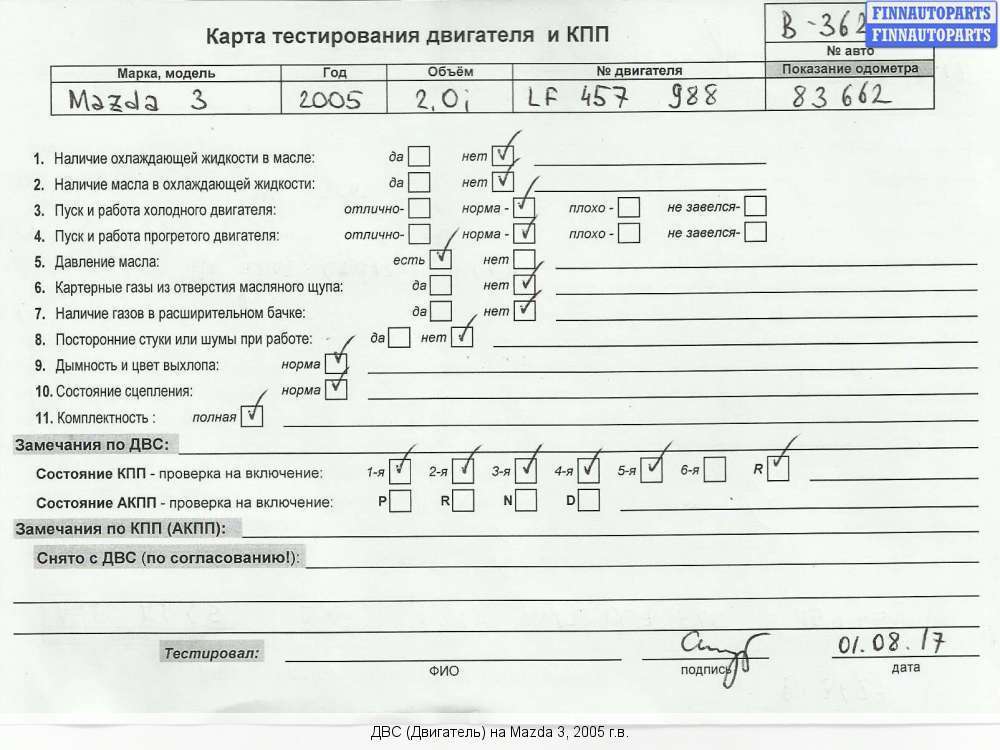 FINNAUTOPARTS
FINNAUTOPARTS
Карта тестирования двигателя и КПП
В -362
№ авто
Марка, модель Год Объём № двигателя Показание одометра
Mazda 3 2005 2,0i LF 457 988 83 662
1. Наличие охлаждающей жидкости в масле: да нет
2. Наличие масла в охлаждающей жидкости: да нет
3. Пуск и работа холодного двигателя: отлично- норма - плохо - не завелся-
4. Пуск и работа прогретого двигателя: отлично- норма - плохо - не завелся-
5. Давление масла: есть нет
6. Картерные газы из отверстия масляного щупа: да нет
7. Наличие газов в расширительном бачке: да нет
8. Посторонние стуки или шумы при работе: да нет
9. Дымность и цвет выхлопа: норма
10. Состояние сцепления: норма
11. Комплектность : полная
Замечания по ДВС:
Состояние КПП - проверка на включение: 1-я 2-я 3-я 4-я 5-я 6-я R
Состояние АКПП - проверка на включение: P R N D
Замечания по КПП (АКПП):
Снято с ДВС (по согласованию!):
Тестировал: 01.08.17
ФИО подпись дата
ДВС (Двигатель) на Mazda 3, 2005 г.в.